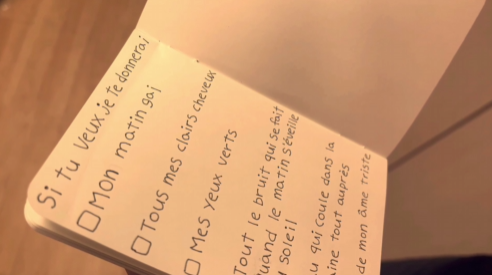 Si tu veux je te donnerai
☐ Mon matin gai
☐ Tous mes clairs cheveux
☐ Mes yeux verts
Tout le bruit qui se fait
uand le matin s'éveille
soleil
u qui coule dans la
ine tout auprès
de mon âme triste